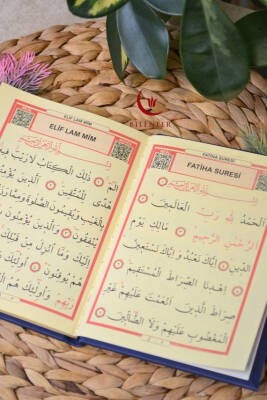 BİLENLER
FATİHA SURESİ
FATİHA SURESİ
بِسْمِ اللّٰهِ الرَّحْمٰنِ الرَّحِيمِ
اَلْحَمْدُ لِلّٰهِ رَبِّ الْعَالَمِينَ
اَلرَّحْمٰنِ الرَّحِيمِ مَالِكِ يَوْمِ
الدِّينِ اِيَّاكَ نَعْبُدُ وَاِيَّاكَ نَسْتَعِينُ
اِهْدِنَا الصِّرَاطَ الْمُسْتَقِيمَ
صِرَاطَ الَّذِينَ اَنْعَمْتَ عَلَيْهِمْ غَيْرِ
الْمَغْضُوبِ عَلَيْهِمْ وَلَا الضَّالِّينَ
ELİF LAM MİM
بِسْمِ اللّٰهِ الرَّحْمٰنِ الرَّحِيمِ
الٓمٓ ذٰلِكَ الْكِتَابُ لَا رَيْبَ فِيهِ
هُدًى لِلْمُتَّقِينَ اَلَّذِينَ يُؤْمِنُونَ
بِالْغَيْبِ وَيُقِيمُونَ الصَّلٰوةَ وَمِمَّا
يُنْفِقُونَ وَالَّذِينَ يُؤْمِنُونَ
اِلَيْكَ وَمَا اُنْزِلَ مِنْ قَبْلِكَ
هُمْ يُوقِنُونَ اُولٰئِكَ
رَبِّهِمْ وَاُولٰئِكَ هُمُ